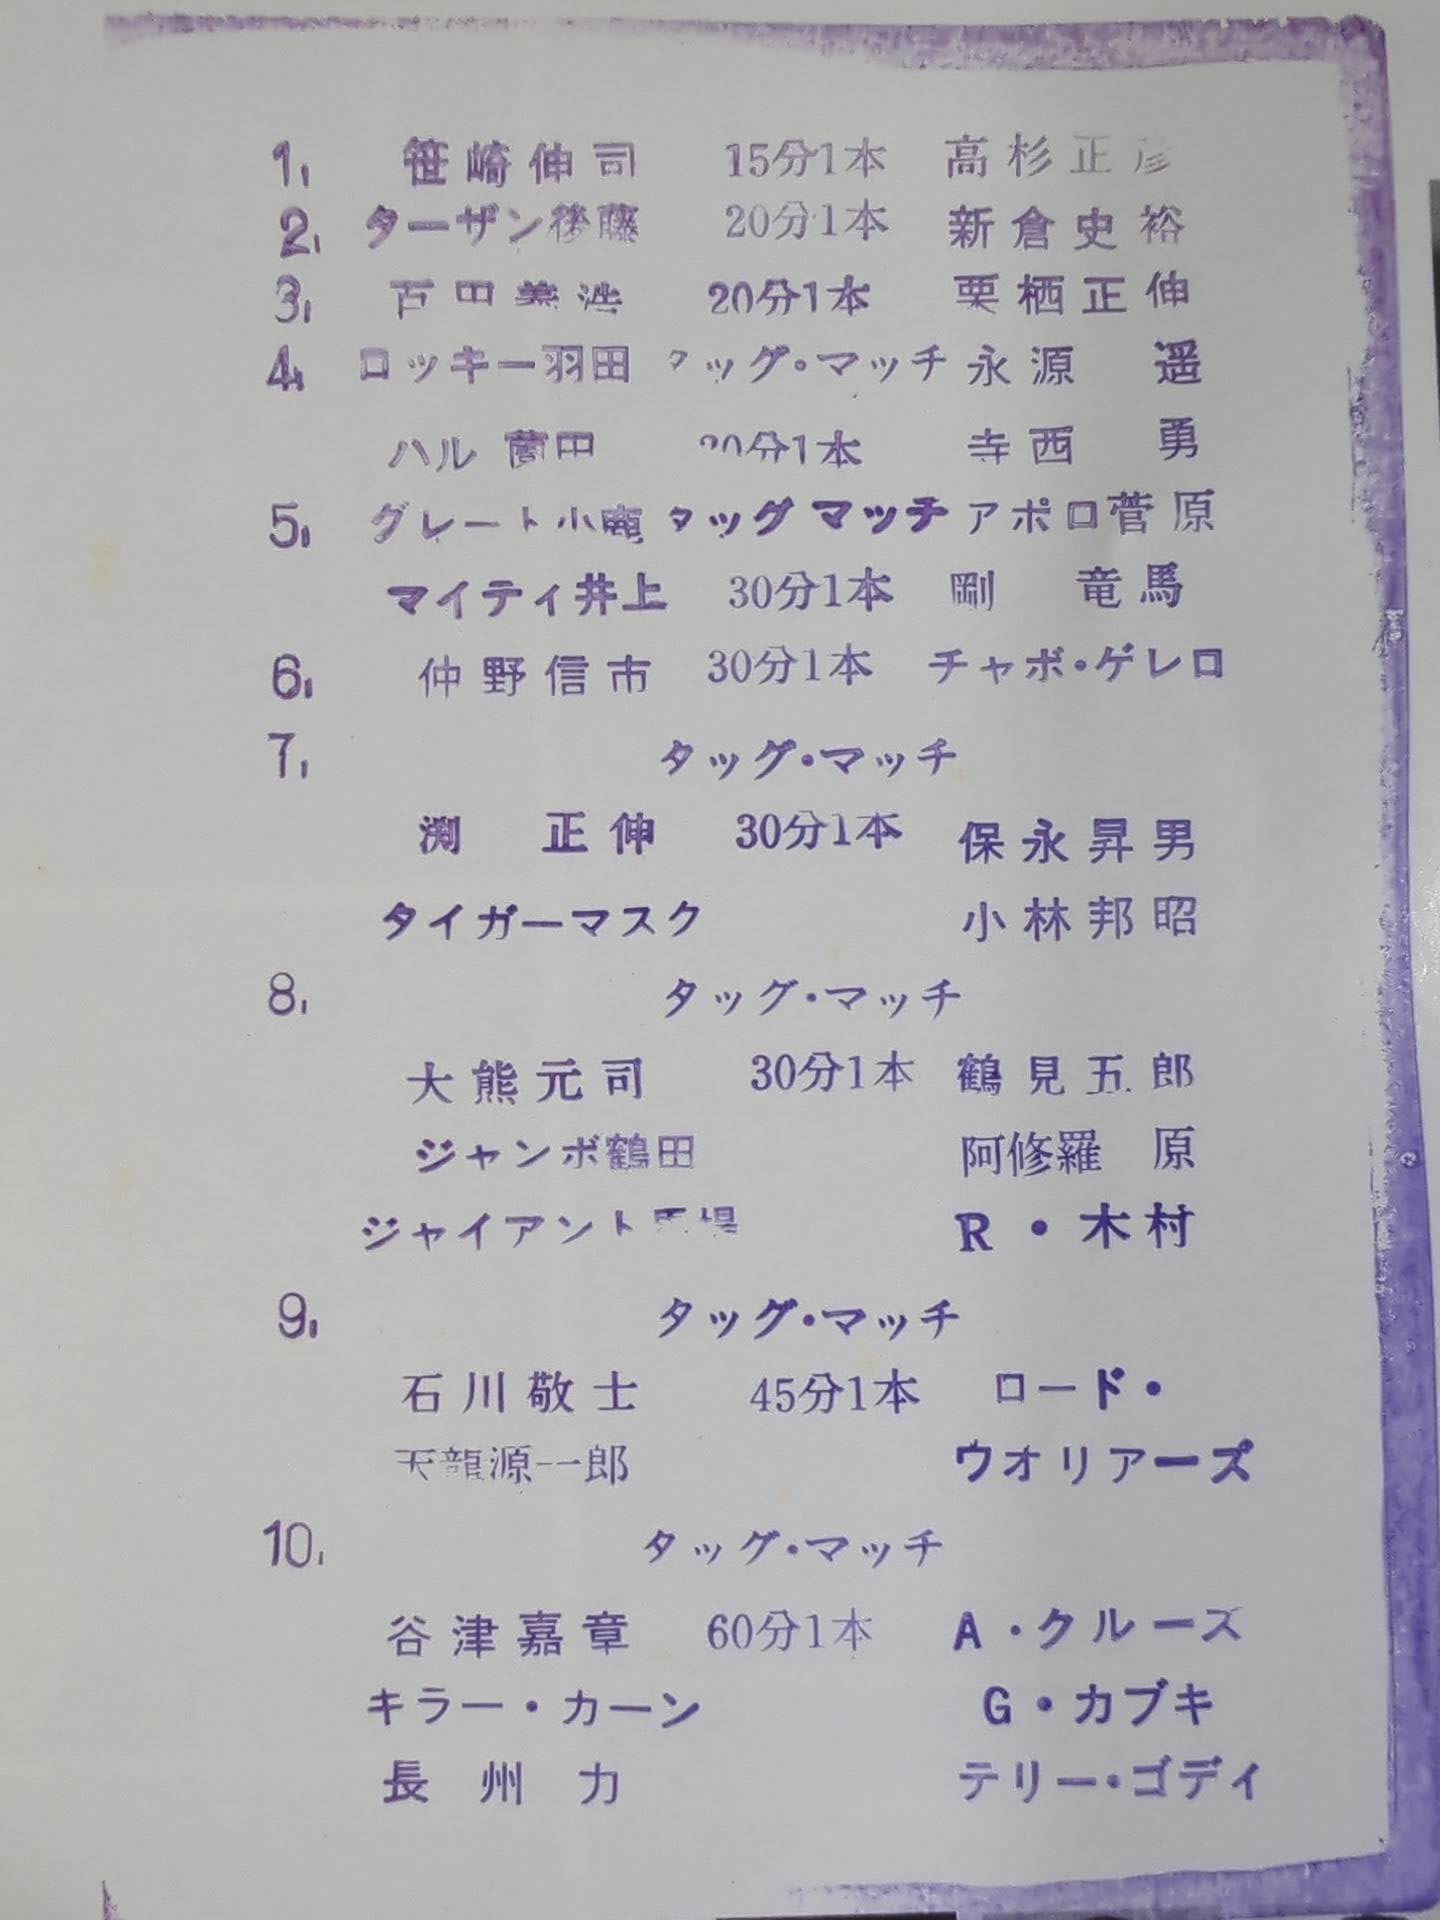 1. 笹崎伸司 15分1本 高杉正彦
2. ターザン後藤 20分1本 新倉史裕
3. 百田義浩 20分1本 栗栖正伸
4. ロッキー羽田 タッグ・マッチ 永源 遥
ハル薗田 20分1本 寺西 勇
5. グレート小鹿 タッグマッチ アポロ菅原
マイティ井上 30分1本 剛 竜馬
6. 仲野信市 30分1本 チャボ・ゲレロ
7. タッグ・マッチ
渕 正伸 30分1本 保永昇男
タイガーマスク 小林邦昭
8. タッグ・マッチ
大熊元司 30分1本 鶴見五郎
ジャンボ鶴田 阿修羅 原
ジャイアント馬場 R・木村
9. タッグ・マッチ
石川敬士 45分1本 ロード・
天龍源一郎 ウオリアーズ
10. タッグ・マッチ
谷津嘉章 60分1本 A・クルーズ
キラー・カーン G・カブキ
長州力 テリー・ゴディ